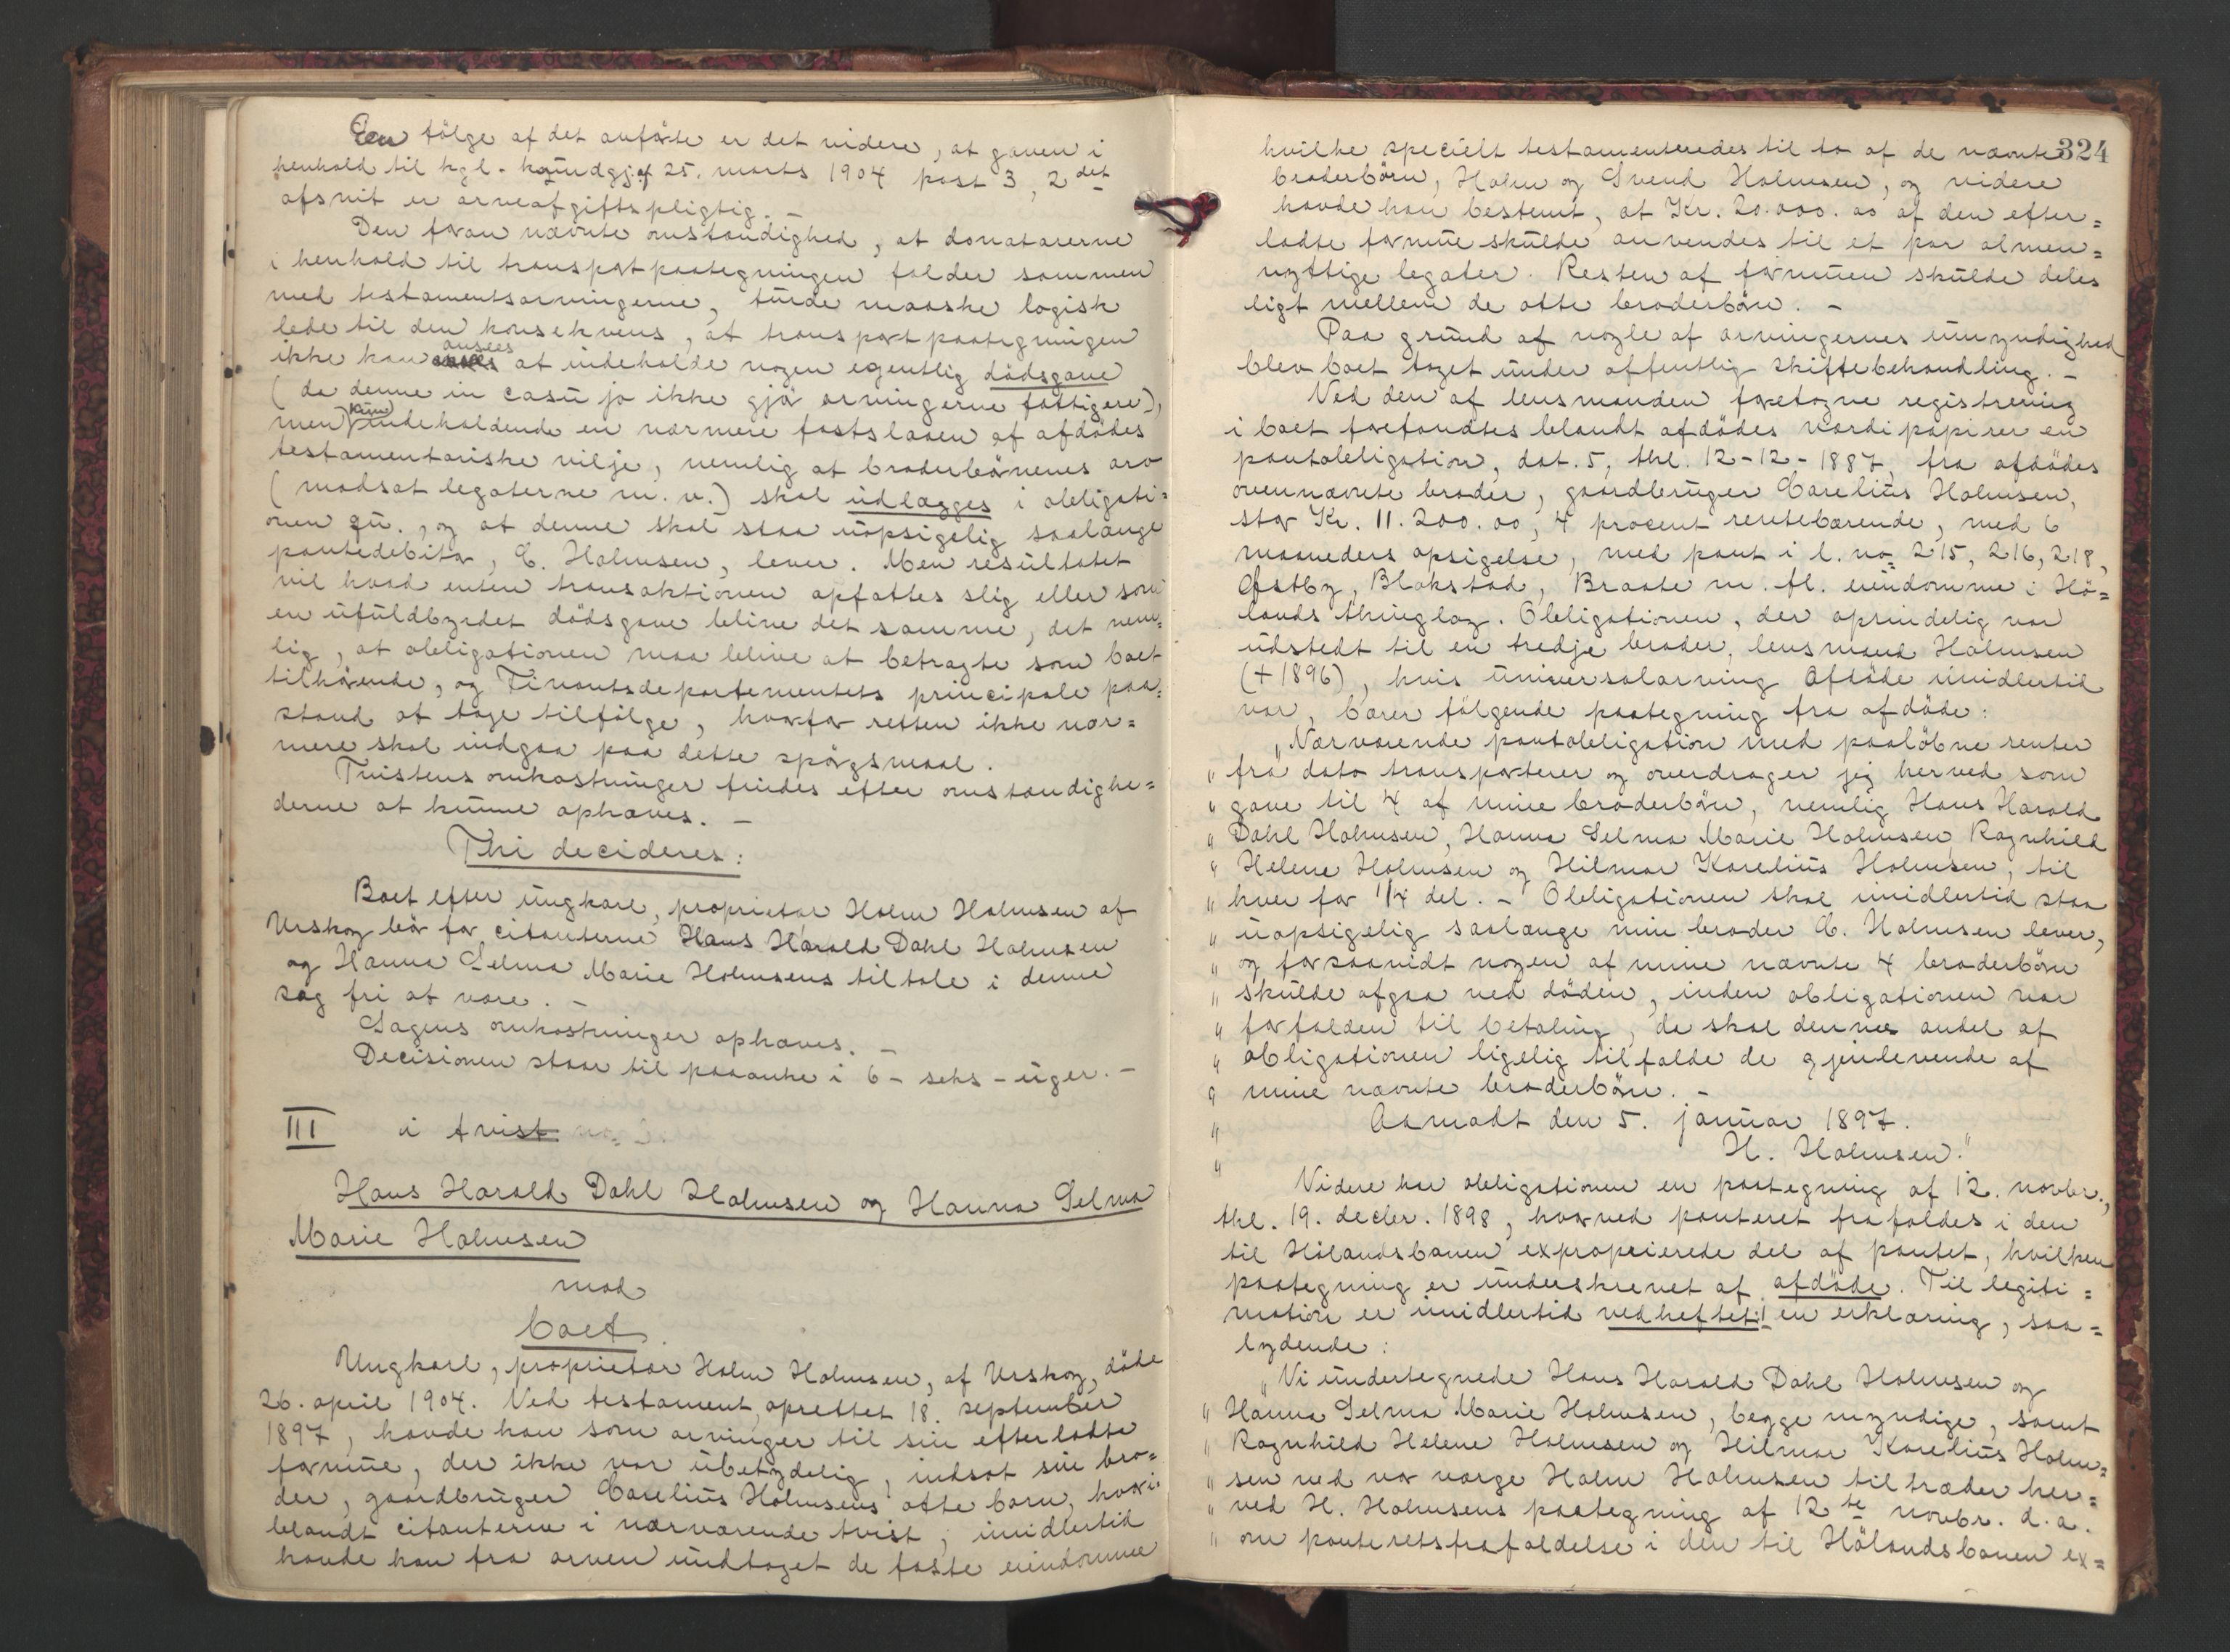 En følge af det anførte er det videre, at gaven i
henhold til kgl. kundgj. af 25. marts 1904 post 3, 2det
afsnit er arveafgiftspligtig. –
Den foran nævnte omstændighed, at donatarerne
i henhold til transportpaategningen falder sammen
med testamentsarvingerne, turde maaske logisk
lede til den konsekvens, at transportpaategningen
ikke kan ansees at indeholde nogen egentlig dødsgave
(da denne in casu jo ikke gjør arvingerne fattigere),
men kun indeholdende en nærmere fastslaaen af afdødes
testamentariske vilje, nemlig at broderbørnenes arv
(modsat legaterne m. v.) skal udlægges i obligati=
onen qu., og at denne skal staa uopsigelig saalænge
pantedebitor, C. Holmsen, lever. Men resultatet
vil hvad enten transaktionen opfattes slig eller som
en ufuldbyrdet dødsgave blive det samme, det nem=
lig, at obligationen maa blive at betragte som boet
tilhørende, og Finantsdepartementets principale paa=
stand at tage tilfølge, hvorfor retten ikke nær=
mere skal indgaa paa dette spørgsmaal.
Tvistens omkostninger findes efter omstændighe=
derne at kunne ophæves. –
Thi decideres:
Boet efter ungkarl, proprietær Holm Holmsen af
Urskog bør for citanterne Hans Harald Dahl Holmsen
og Hanna Selma Marie Holmsens tiltale i denne
sag fri at være. –
Sagens omkostninger ophæves. –
Decisionen staar til paaanke i 6 – seks – uger. –
III i tvist
Hans Harald Dahl Holmsen og Hanna Selma
Marie Holmsen
mod
boet.
Ungkarl, proprietær Holm Holmsen, af Urskog, døde
26. april 1904. Ved testament, oprettet 18. september
1897, havde han som arvinger til sin efterladte
formue, der ikke var ubetydelig, indsat sin bro=
der, gaardbruger Carelius Holmsens otte barn, hvori=
blandt citanterne i nærværende tvist; imidlertid
havde han fra arven undtaget de faste eiendomme
324
hvilke specielt testamenteredes til to af de nævnte
broderbørn, Holm og Svend Holmsen, og videre
havde han bestemt, at Kr. 20.000.00 af den efter=
ladte formue skulde anvendes til et par almen=
nyttige legater. Resten af formuen skulde deles
ligt mellem de otte broderbørn. –
Paa grund af nogle af arvingernes umyndighed
blev boet taget under offentlig skiftebehandling. –
Ved den af lensmanden foretagne registrering
i boet forefandtes blandt afdødes værdipapirer en
pantobligation, dat. 5, thl. 12-12-1887, fra afdødes
ovennævnte broder, gaardbruger Carelius Holmsen,
stor Kr. 11.200.00, 4 procent rentebærende, med 6
maaneders opsigelse, med pant i l. no 215, 216, 218,
Østby, Blakstad, Braate m. fl. eiendomme i Hø=
lands thinglag. Obligationen, der oprindelig var
udstedt til en tredje broder, lensmand Holmsen
(† 1896), hvis universalarving afdøde imidlertid
var, bærer følgende paategning fra afdøde:
„Nærværende pantobligation med paaløbne renter
„ fra dato transporterer og overdrager jeg herved som
„ gave til 4 af mine broderbørn, nemlig Hans Harald
„ Dahl Holmsen, Hanna Selma Marie Holmsen, Ragnhild
„ Helene Holmsen og Hilmar Karelius Holmsen, til
„ hver for 1/4 del. – Obligationen skal imidlertid staa
„ uopsigelig saalænge min broder C. Holmsen lever,
„ og forsaavidt nogen af mine nævnte 4 broderbørn
„ skulde afgaa ved døden, inden obligationen var
„ forfalden til betaling, da skal dennes andel af
„ obligationen ligelig tilfalde de gjenlevende af
„ mine nævnte broderbørn. –
„ Aamodt den 5. januar 1897.
„ H. Holmsen."
Videre har obligationen en paategning af 12. novbr.,
thl. 19. decbr. 1898, hvorved panteret frafaldes i den
til Hølandsbanen exproprierede del af pantet, hvilken
paategning er underskrevet af afdøde. Til legiti=
mation er imidlertid vedheftet en erklæring, saa=
lydende:
„Vi undertegnede Hans Harald Dahl Holmsen og
„ Hanna Selma Marie Holmsen, begge myndige, samt
„ Ragnhild Helene Holmsen og Hilmar Karelius Holm=
„ sen ved vor værge Holm Holmsen tiltræder her=
„ ved H. Holmsens paategning af 12te novbr. d. a.
„ om panteretsfrafaldelse i den til Hølandsbanen ex=